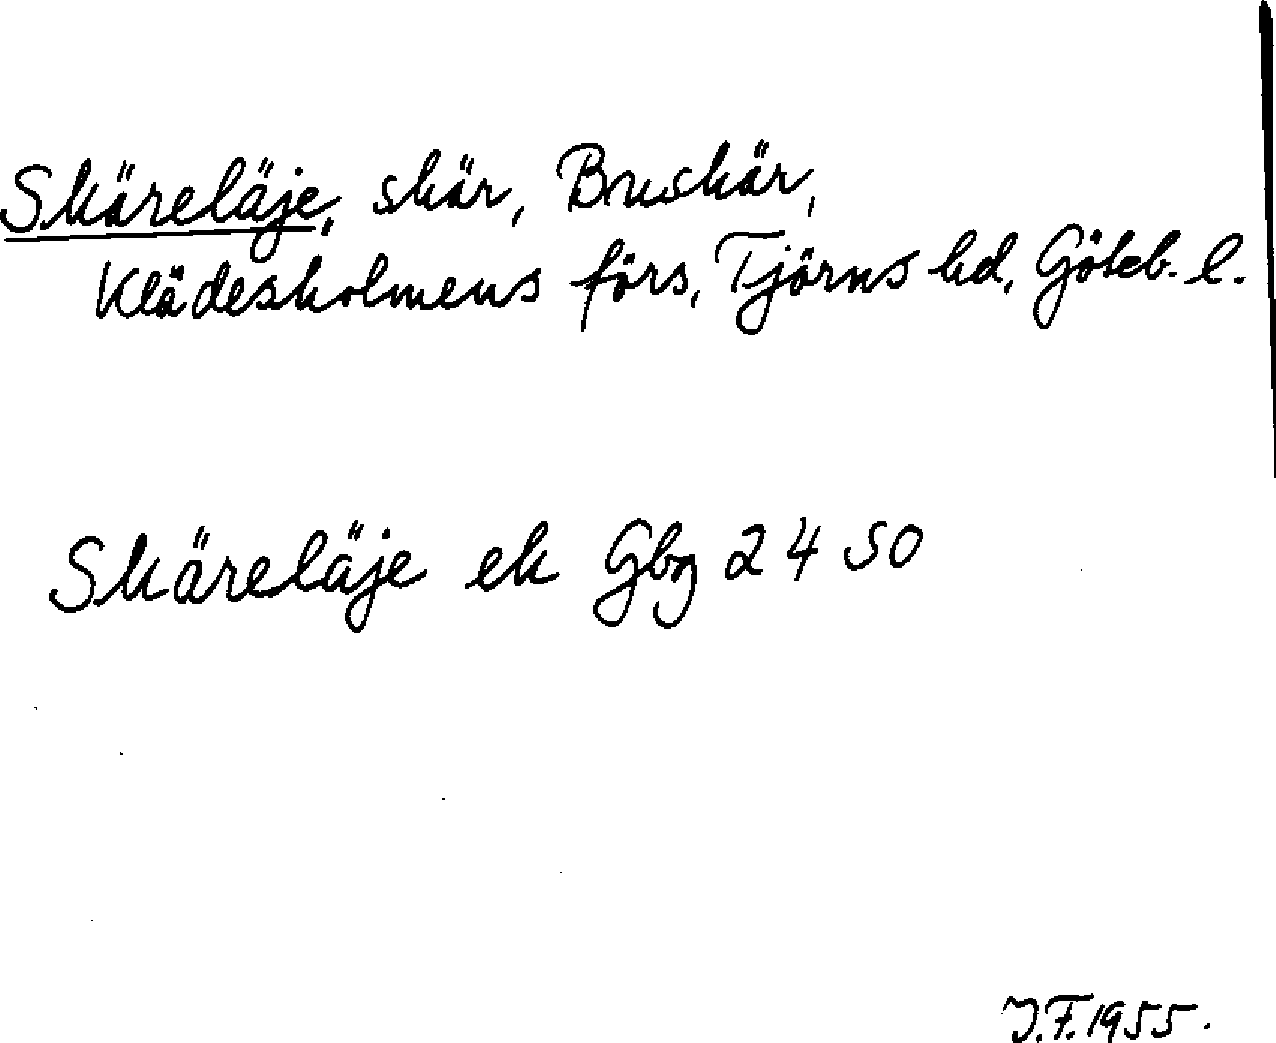 Skäreläje, skär, Bruskär,
Klädesholmens förs, Tjörns hd, Göteb. l.
Skäreläje ek Gbg 24 SO
J.F. 1955.